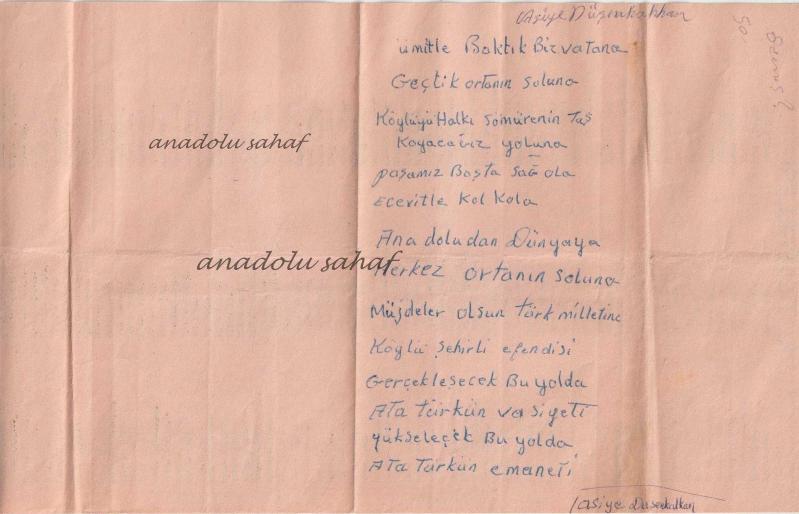 Asiye Düşenkalkan
ümitle Baktık Biz vatana
Geçtik ortanın soluna
Köylüyü Halkı sömürenin taş
Koyacağız yoluna
paşamız Başta sağ ola
Ecevitle Kol Kola
Ana doludan Dünyaya
Herkez ortanın soluna
Müjdeler olsun türk milletine
Köylü şehirli efendisi
Gerçekleşecek Bu yolda
Ata türkün va siyeti
yükseleçek Bu yolda
Ata türkün emaneti
asiye Dusenkalkan
anadolu sahaf
anadolu sahaf